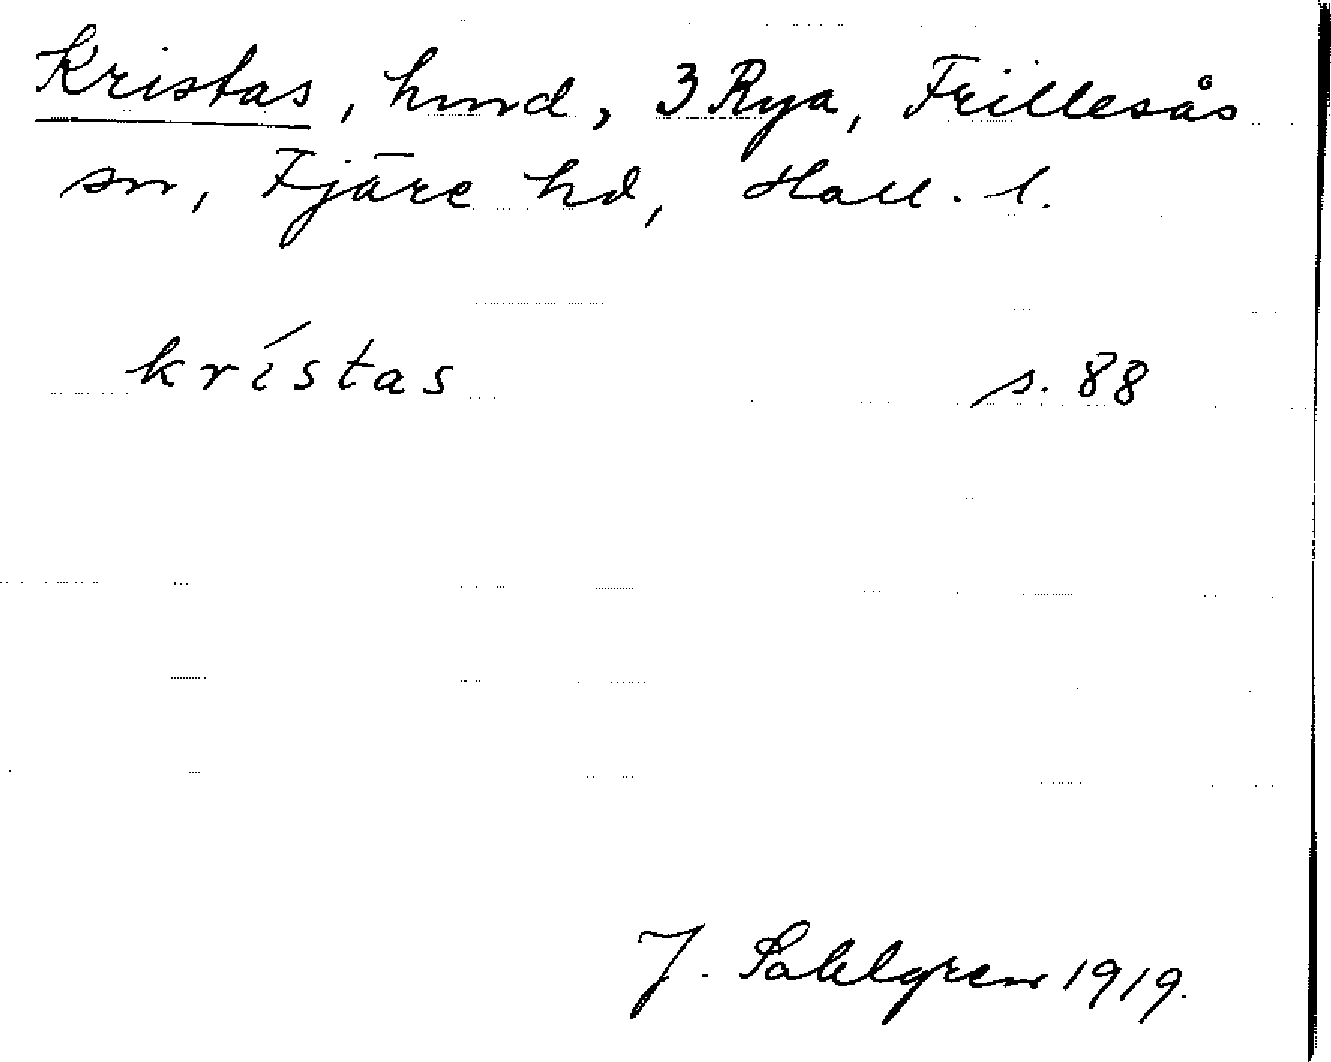 Kristas, hmd, 3 Rya, Frillesås
sn, Fjäre hd, Hall. l.
krístas s. 88
J. Sahlgren 1919.